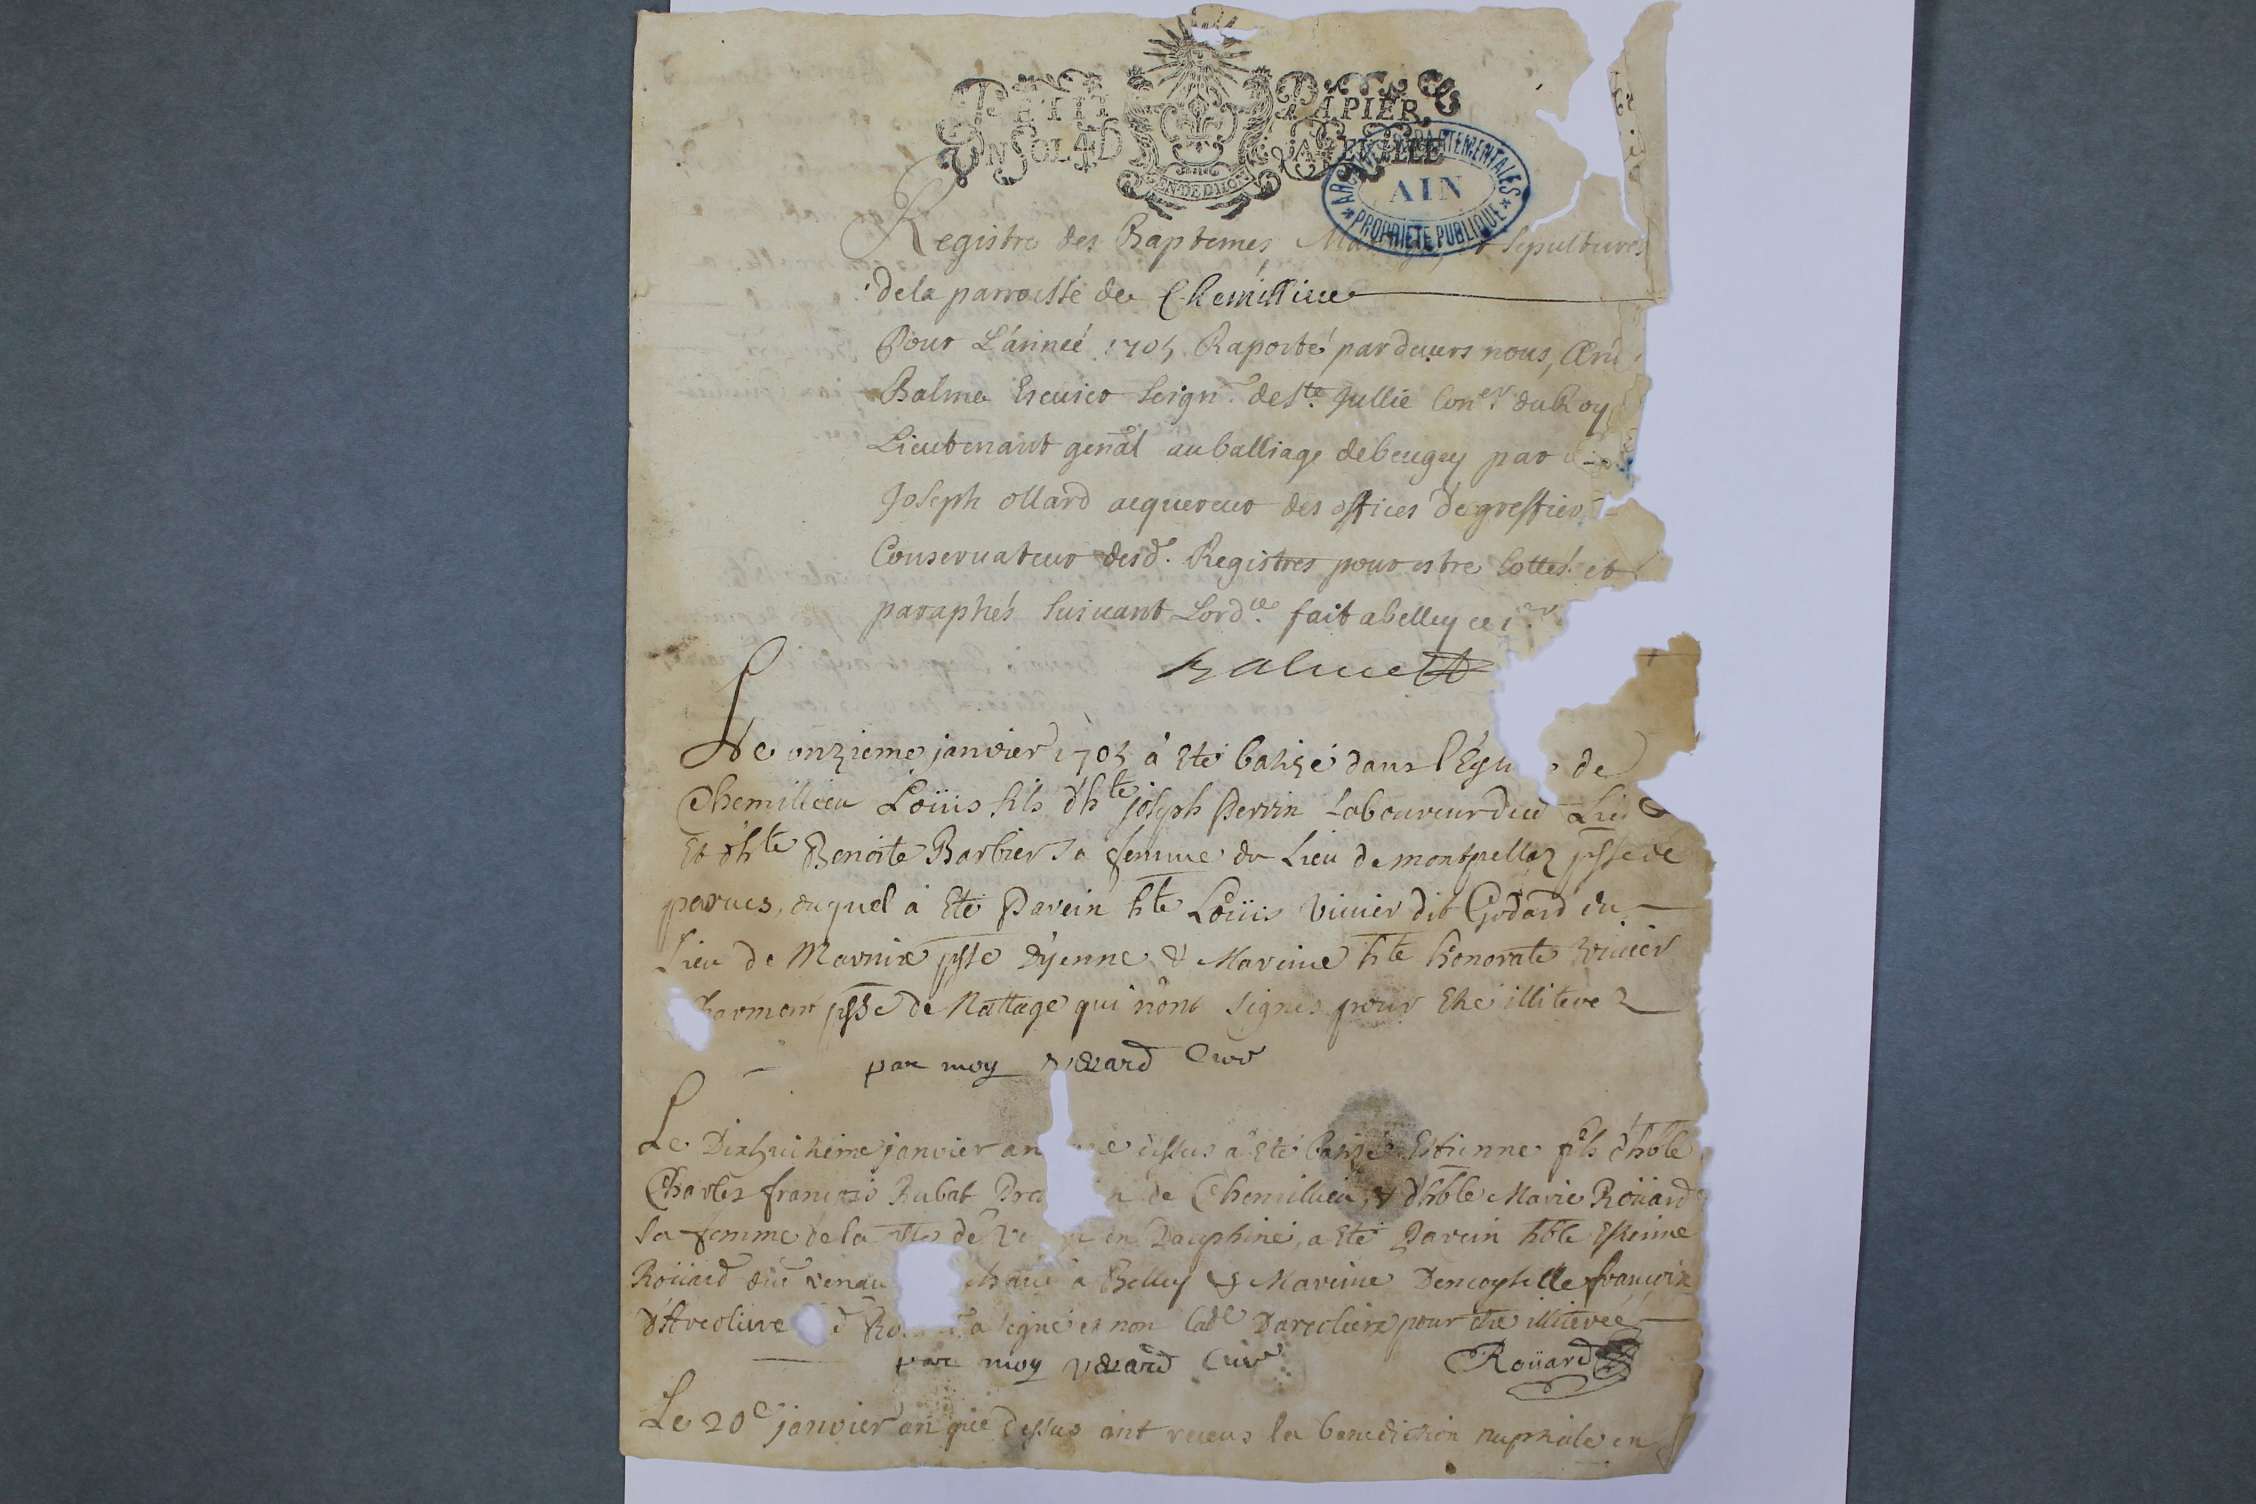 PETIT PAPIER
UN SOL 4 D LA FEUILLE
GEN DE DIION
ARCHIVES DEPARTEMENTALES
AIN
PROPRIETE PUBLIQUE
Registre des Baptemes, et Sepultures
de la parroisse de Chemillieu
Pour L'anneé 1705 Raporté pardeuers nous,
Balme Escuier Seignr. de Ste. Jullie Coner. du Roy
Lieutenant genãl au balliage de beugey par
Joseph ollard acquereur des offices de greffier
Conseruateur desd. Registres pour estre Cottés et
paraphés Suiuant Lordce. fait a belley ce 1er
Balme
Le onzieme janvier 1705 à Eté batisé dans l'Eg de
Chemillieu Loüis fils d'hte joseph Perrin Laboureur dud Lieu
Et d'hte Benoite Barbier sa femme du Lieu de montpellaz psse de
parues, duquel à Eté Parein hte Loüis Vuiier dit Godard du
Lieu de Marnix psse D'yenne & Mareine hte honorate Vuiier
psse de Nattage qui nônt Signés pour Etre illiterez
par moy Curé
Le Dixhuitieme janvier an dessus à eté batisé Estienne fils d'hôble
Charles françois Rubat de Chemillieu, & d'hôble Marie Roüard
sa femme de la de en Dauphiné, a Eté Parein hôble Estienne
Roüard à Belley & Mareine Demoyselle françoise
D'Arcoliere d a signé et non lade Darcoliere pour être illiterée
par moy Curé Roüard
Le 20e janvier an que dessus ont receus la benediction nuptiale en